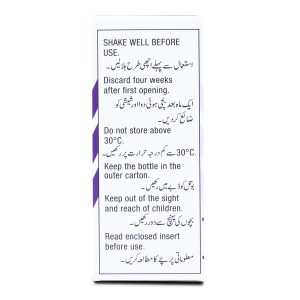 SHAKE WELL BEFORE
USE.
استعمال سے پہلے اچھی طرح ہلا لیں۔
Discard four weeks
after first opening.
ایک ماہ بعد بچی ہوئی دوا اور شیشی کو
ضائع کر دیں۔
Do not store above
30°C.
30°C سے کم درجہ حرارت پر رکھیں۔
Keep the bottle in the
outer carton.
بوتل کو ڈبے میں رکھیں۔
Keep out of the sight
and reach of children.
بچوں کی پہنچ سے دور رکھیں۔
Read enclosed insert
before use.
معلوماتی پرچے کا مطالعہ کریں۔